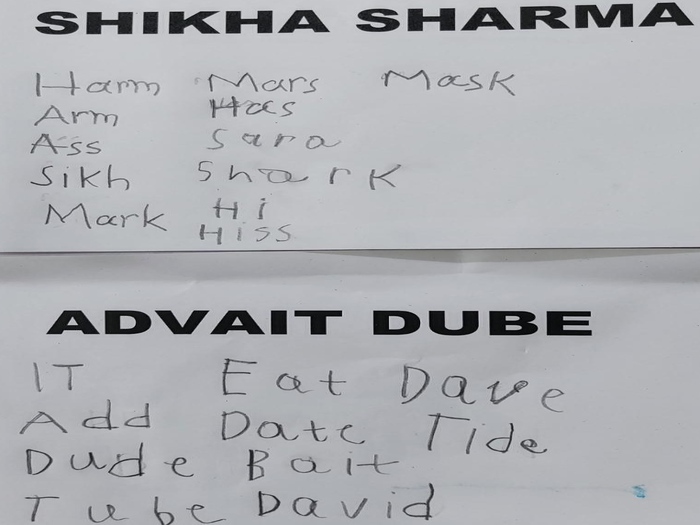 SHIKHA SHARMA
Harm Mars Mask
Arm Has
Ass Sara
Sikh Shark
Mark Hi
Hiss
ADVAIT DUBE
IT Eat Dave
Add Date Tide
Dude Bait
Tube David